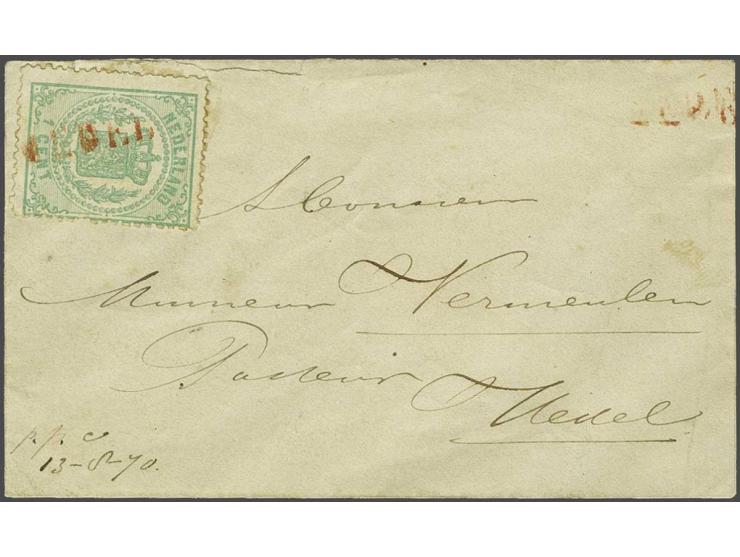 NEDERLAND
1 CENT
à Monsieur
Monsieur Vermeulen
Pasteur
p.p.c
13-8-70.